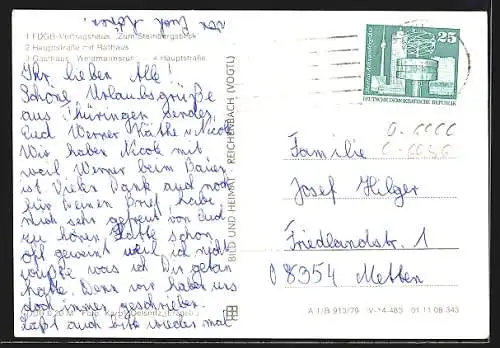 von Euch hören.
1 FDGB-Vertragshaus "Zum Steinbergsblick"
2 Hauptstraße mit Rathaus
3 Gasthaus "Weidmannsruh" · 4 Hauptstraße
Ihr lieben Alle!
Schöne Urlaubsgrüße
aus Thüringen senden
Euch Werner Käthe u. Nicole
Wir haben Nicole mit
weil Werner beim Bauen
ist. Vielen Dank auch noch
für Deinen Brief. habe
mich sehr gefreut von Euch
zu hören. Hatte schon
oft geweint weil ich nicht
wußte was ich Dir getan
hatte. Denn wir habt uns
doch immer geschrieben.
Laßt auch bitte wieder mal
0,20 M Foto: Karpf, Oelsnitz (Erzgeb.)
BILD UND HEIMAT · REICHENBACH (VOGTL)
25
DEUTSCHE DEMOKRATISCHE REPUBLIK
Familie
Josef Hilger
Friedlandstr. 1
08354 Metten
A 1/B 913/79 IV-14-483 01 11 08 343